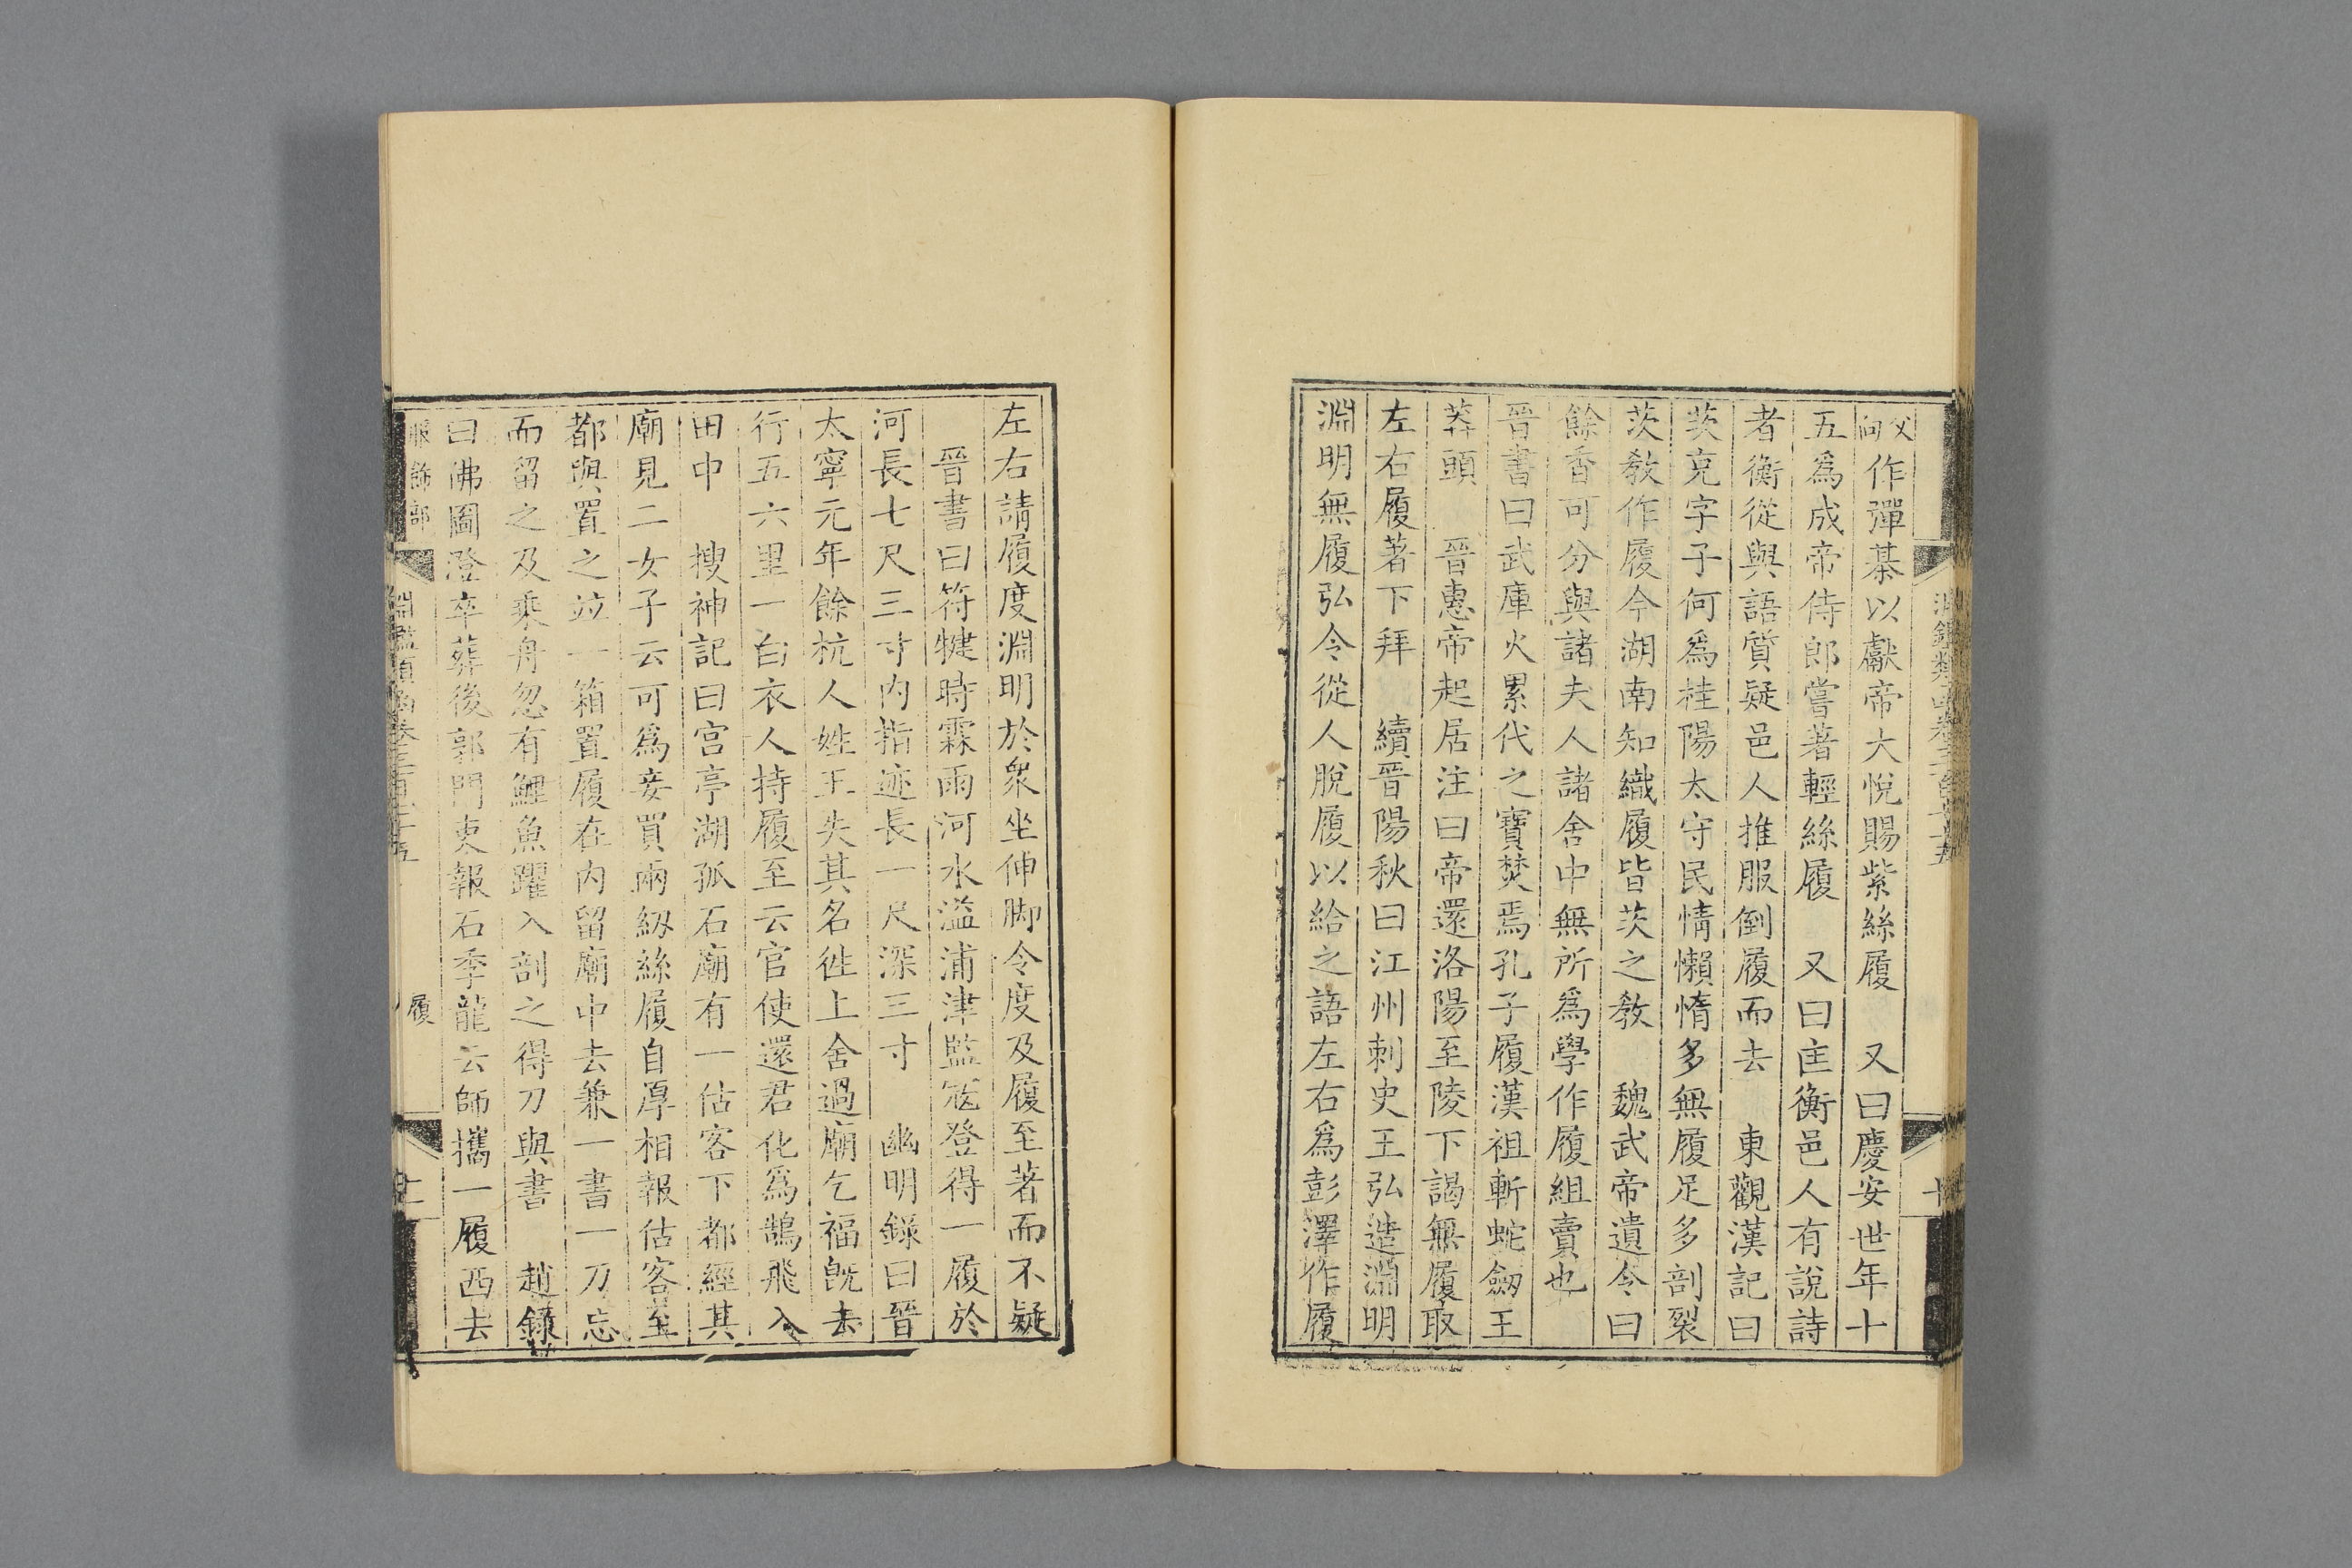 父向作彈棊以獻帝大悅賜紫絲履　又曰慶安世年十
五爲成帝侍郎嘗著輕絲履　又曰匡衡邑人有說詩
者衡從與語質疑邑人推服倒履而去　東觀漢記曰
茨充字子何爲桂陽太守民惰懶惰多無履足多剖裂
茨教作履今湖南知織履皆茨之教　魏武帝遺令曰
餘香可分與諸夫人諸舍中無所爲學作履組賣也
晉書曰武庫火累代之寶焚焉孔子履漢祖斬蛇劒王
莽頭　晉惠帝起居注曰帝還洛陽至陵下謁無履取
左右履著下拜　續晉陽秋曰江州刺史王弘造淵明
淵明無履弘令從人脫履以給之語左右爲彭澤作履
左右請履度淵明於衆坐伸脚令度及履至著而不疑
晉書曰符犍時霖雨河水溢浦津監寇登得一履於
河長七尺三寸內指迹長一尺深三寸　幽明錄曰晉
太寧元年餘杭人姓王失其名徃上舍過廟乞福旣去
行五六里一白衣人持履至云官使還君化爲鵠飛入
田中　搜神記曰宮亭湖孤石廟有一估客下都經其
廟見二女子云可爲妾買兩緉絲履自厚相報估客至
都與置之竝一箱置履在內留廟中去兼一書一刀忘
而留之及乘舟忽有鯉魚躍入剖之得刀與書　趙錄
曰佛圖澄卒葬後郭門吏報石季龍云師攜一履西去
服飾部　淵鑑類函卷三百七十五　履